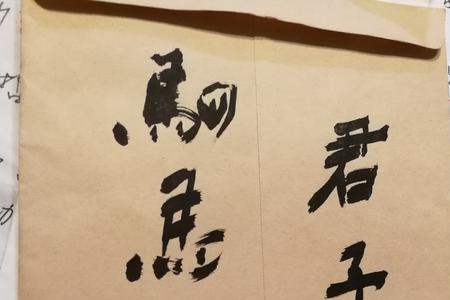 君子
駟馬